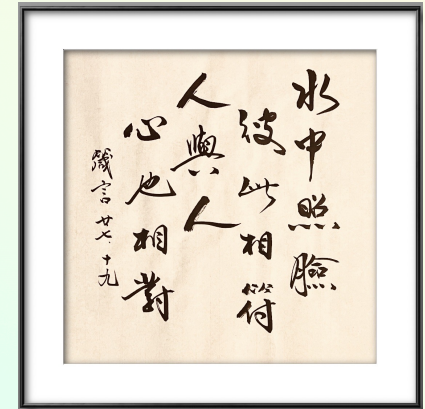 水中照臉
彼此相符
人與人
心也相對
箴言 廿七.十九